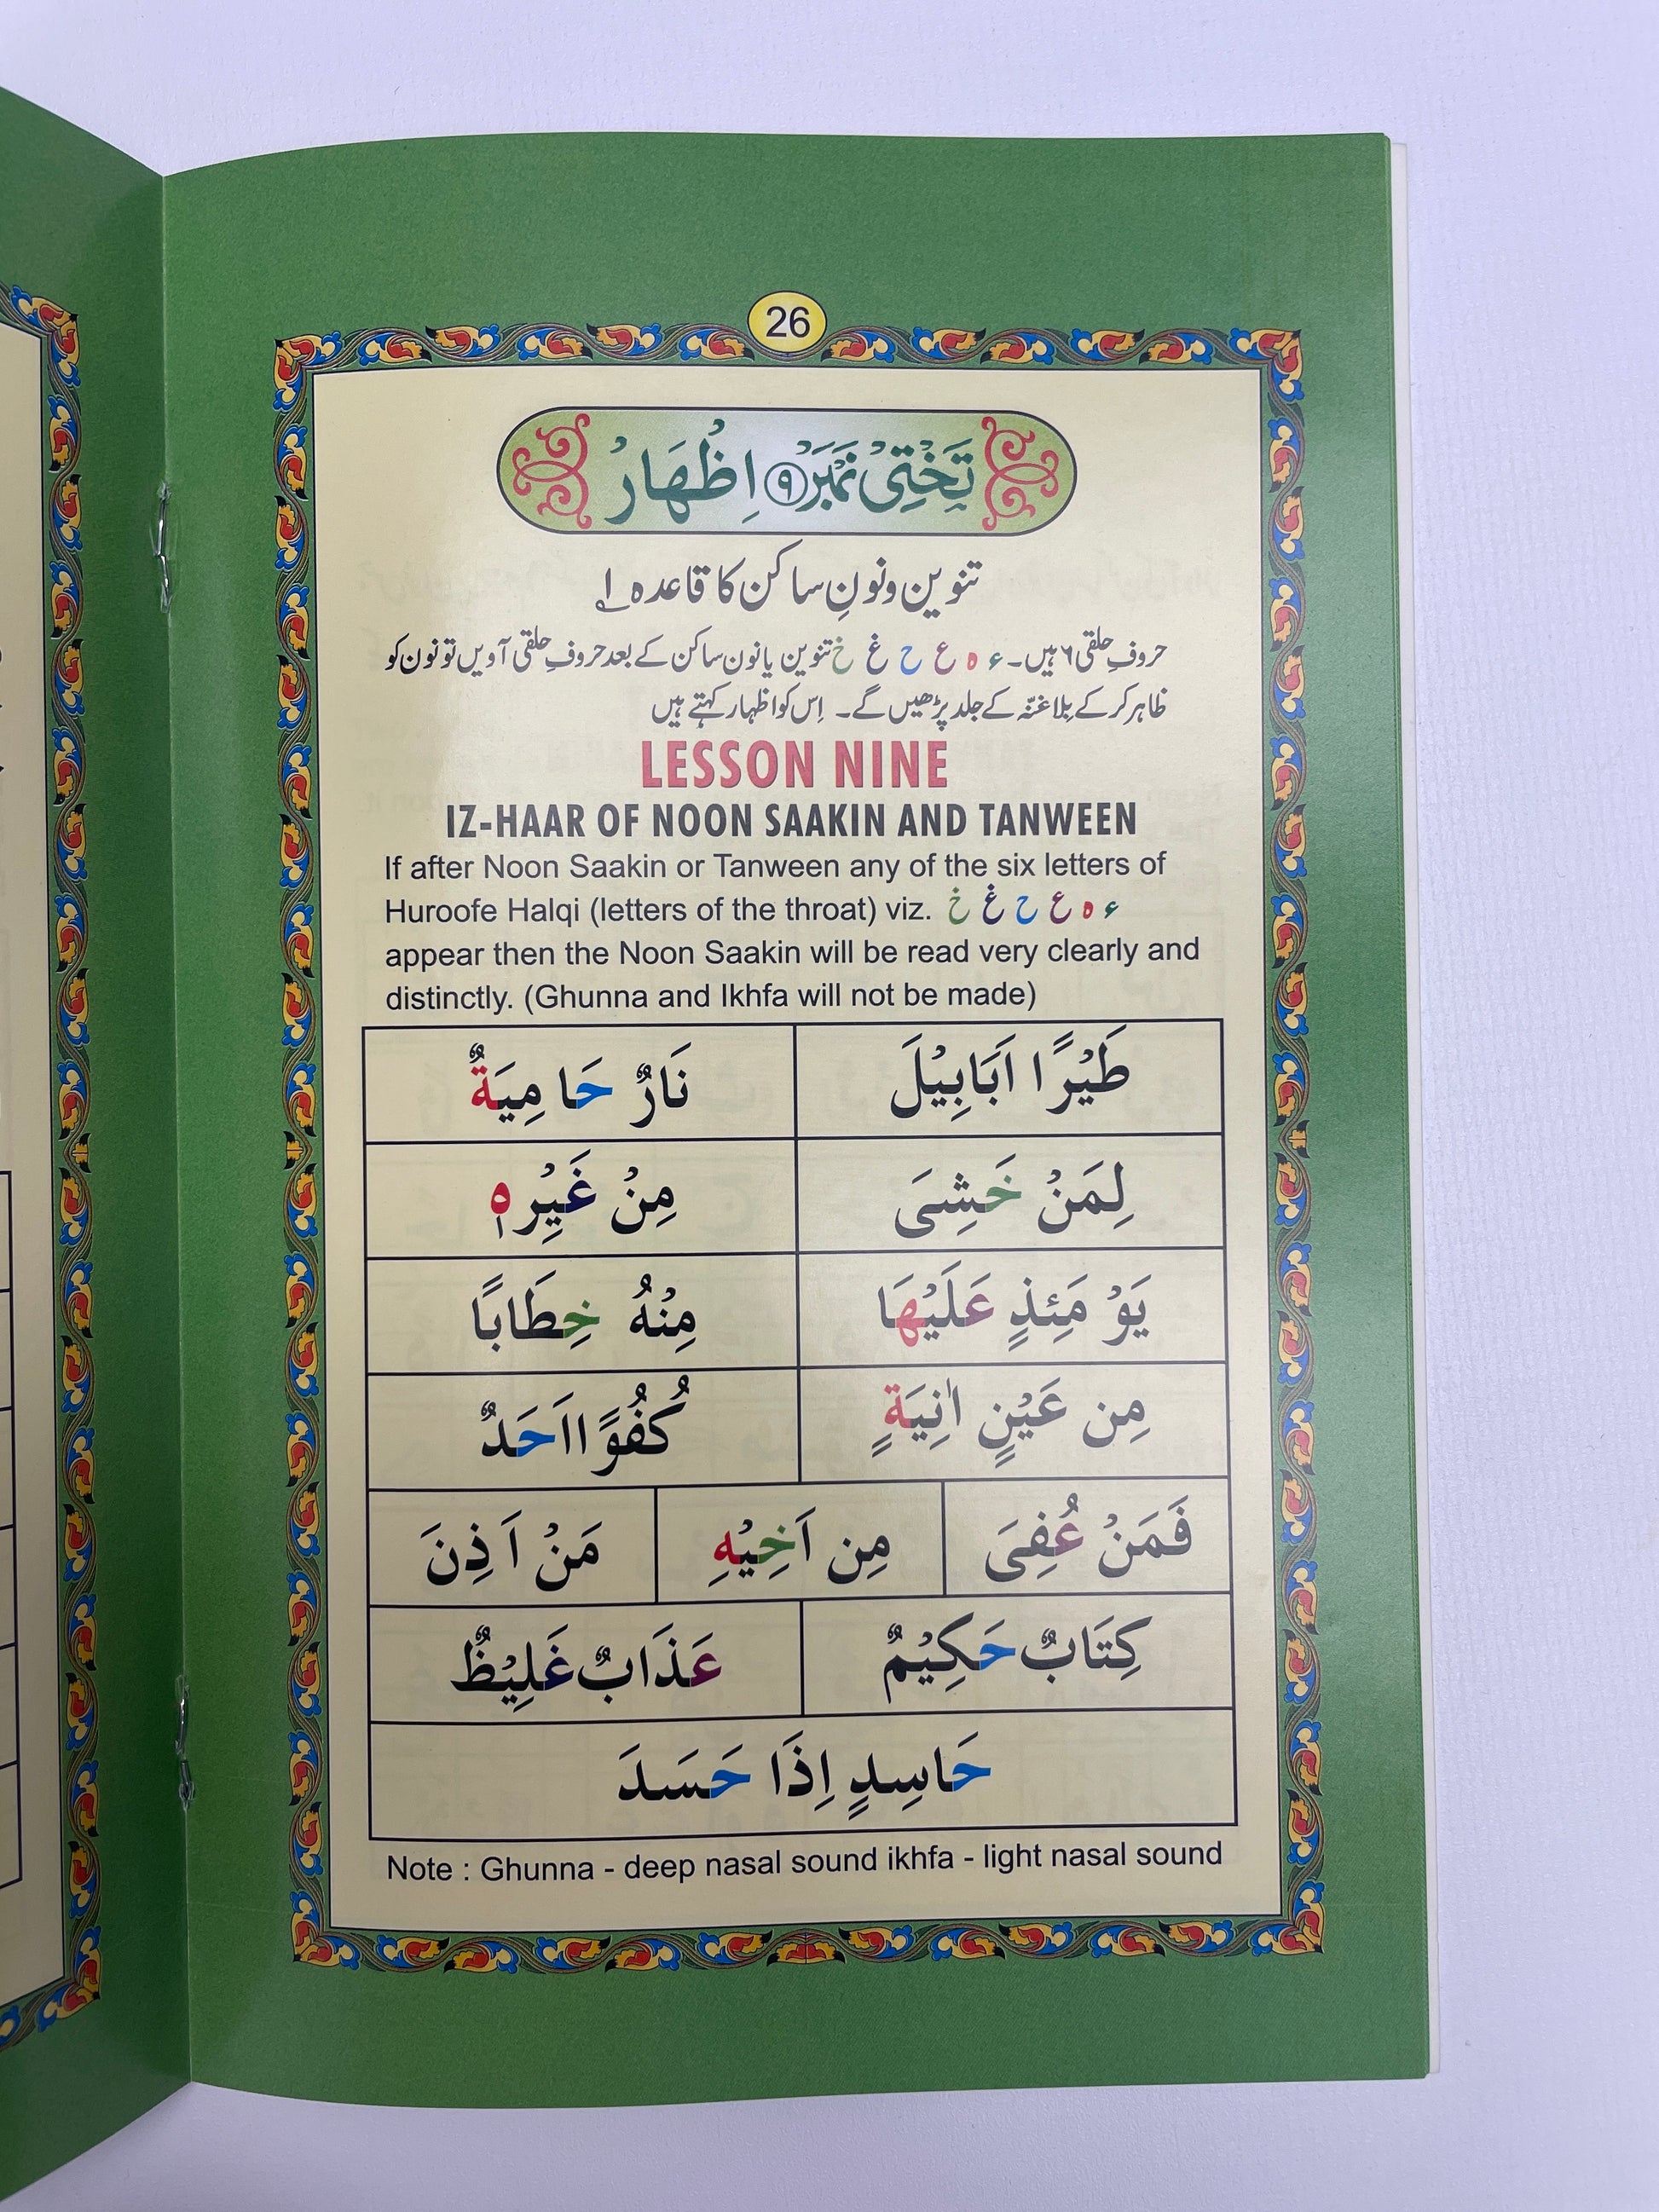 26
تَخْتِیْ نَمْبَرْ ۹ اِظْهَارْ
تنوین و نونِ ساکن کا قاعدہ ۱
حروفِ حلقی ۶ ہیں۔ ء ہ ع ح غ خ تنوین یا نون ساکن کے بعد حروفِ حلقی آویں تو نون کو
ظاہر کر کے بِلا غنّہ کے جلد پڑھیں گے۔ اِس کو اظہار کہتے ہیں
LESSON NINE
IZ-HAAR OF NOON SAAKIN AND TANWEEN
If after Noon Saakin or Tanween any of the six letters of
Huroofe Halqi (letters of the throat) viz. ء ہ ع ح غ خ
appear then the Noon Saakin will be read very clearly and
distinctly. (Ghunna and Ikhfa will not be made)
طَيْرًا اَبَابِيْلَ نَارٌ حَامِيَةٌ
لِمَنْ خَشِیَ مِنْ غَيْرِهٖ
يَوْمَئِذٍ عَلَيْهَا مِنْهُ خِطَابًا
مِن عَيْنٍ اٰنِيَةٍ كُفُوًا اَحَدٌ
فَمَنْ عُفِیَ مِن اَخِيْهِ مَنْ اَذِنَ
كِتَابٌ حَكِيْمٌ عَذَابٌ غَلِيْظٌ
حَاسِدٍ اِذَا حَسَدَ
Note : Ghunna - deep nasal sound ikhfa - light nasal sound